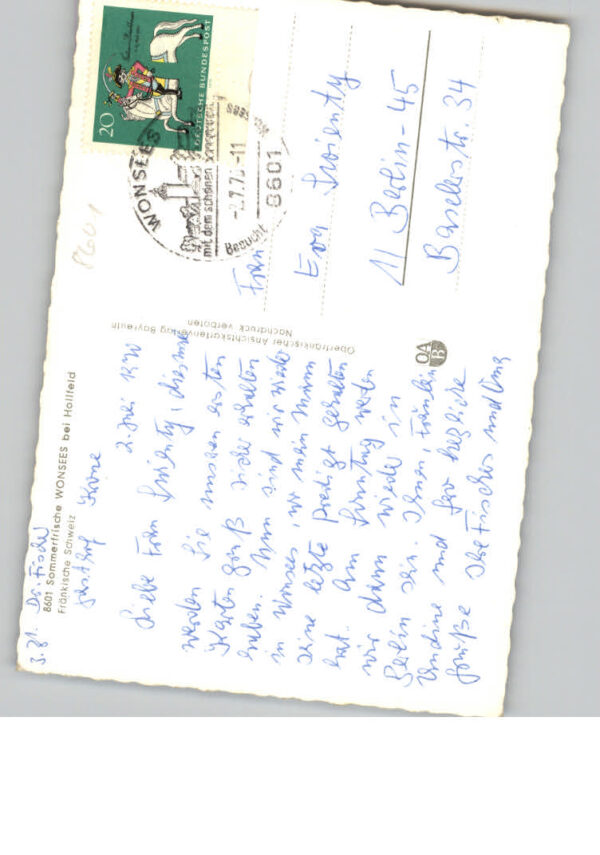 3. Zt. Dr. Fischer
8601 Sommerfrische WONSEES bei Hollfeld
Fränkische Schweiz
Gasthof Krone
2. Mai 1970
Liebe Frau, diesmal
werden Sie unseren ersten
Kartengruß sicher erhalten
haben. Nun sind wir wieder
in Wonsees, wo mein Mann
seine letzte Predigt gehalten
hat. Am Sonntag werden
wir dann wieder in
Berlin sein. Ihnen, Fräulein
Undine und herzliche
Grüße Ihre Fischers
Oberfränkischer Ansichtskartenverlag Bayreuth
Nachdruck verboten
OA
B
20
DEUTSCHE BUNDESPOST
WONSEES
mit dem schönen
-2.7.70-11
8601
Besucht
WONSEES
8601
Frau
Eva
1/ Berlin-45
Baselerstr. 34